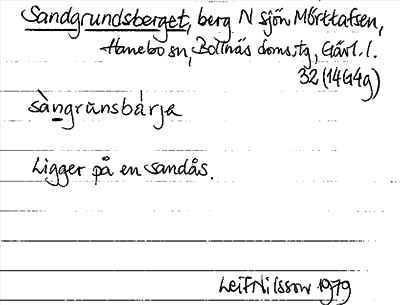 Sandgrundsberget, berg N sjön Mörttafsen,
Hanebo sn, Bollnäs doms.tg, Gävl. l.
32 (14G4g)
sàngrùnsbàrja
Ligger på en sandås.
Leif Nilsson 1979